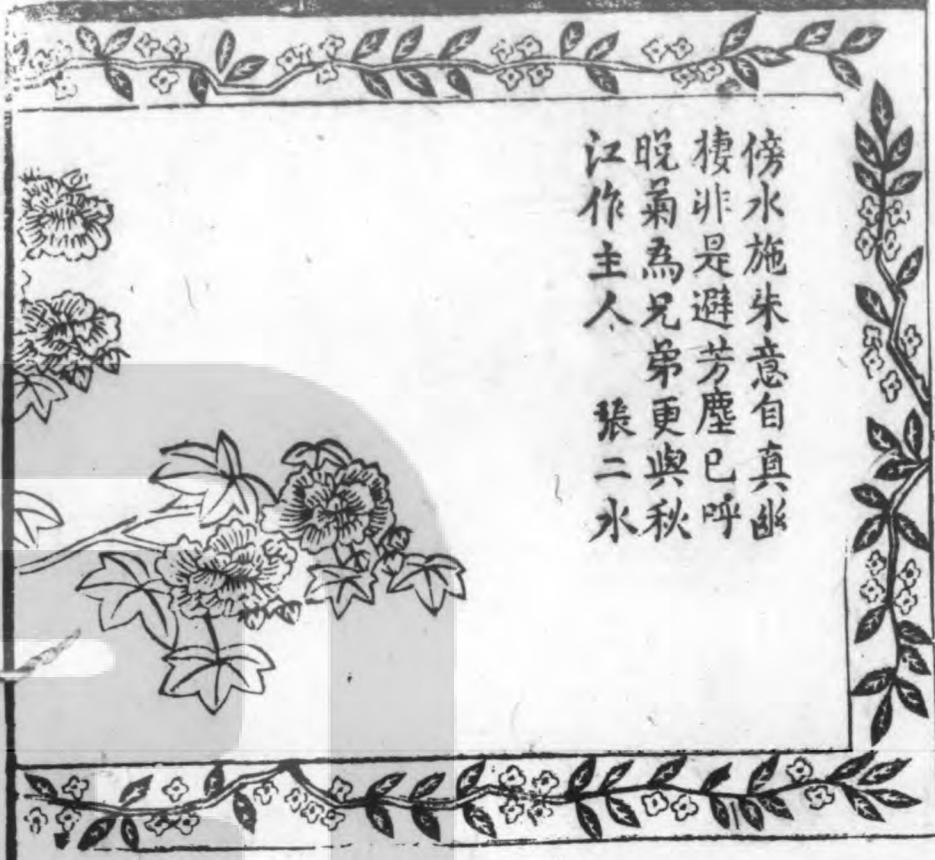 傍水施朱意自真幽
棲非是避芳塵已呼
晚菊為兄弟更與秋
江作主人 張二水